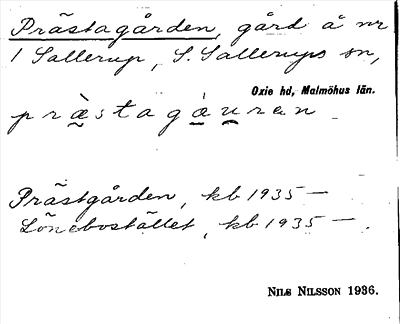 Prästagården, gård å nr
1 Sallerup, S. Sallerups sn,
Oxie hd, Malmöhus län.
Prästgården, kb 1935 —
Lönebostället, kb 1935 — .
NILS NILSSON 1936.